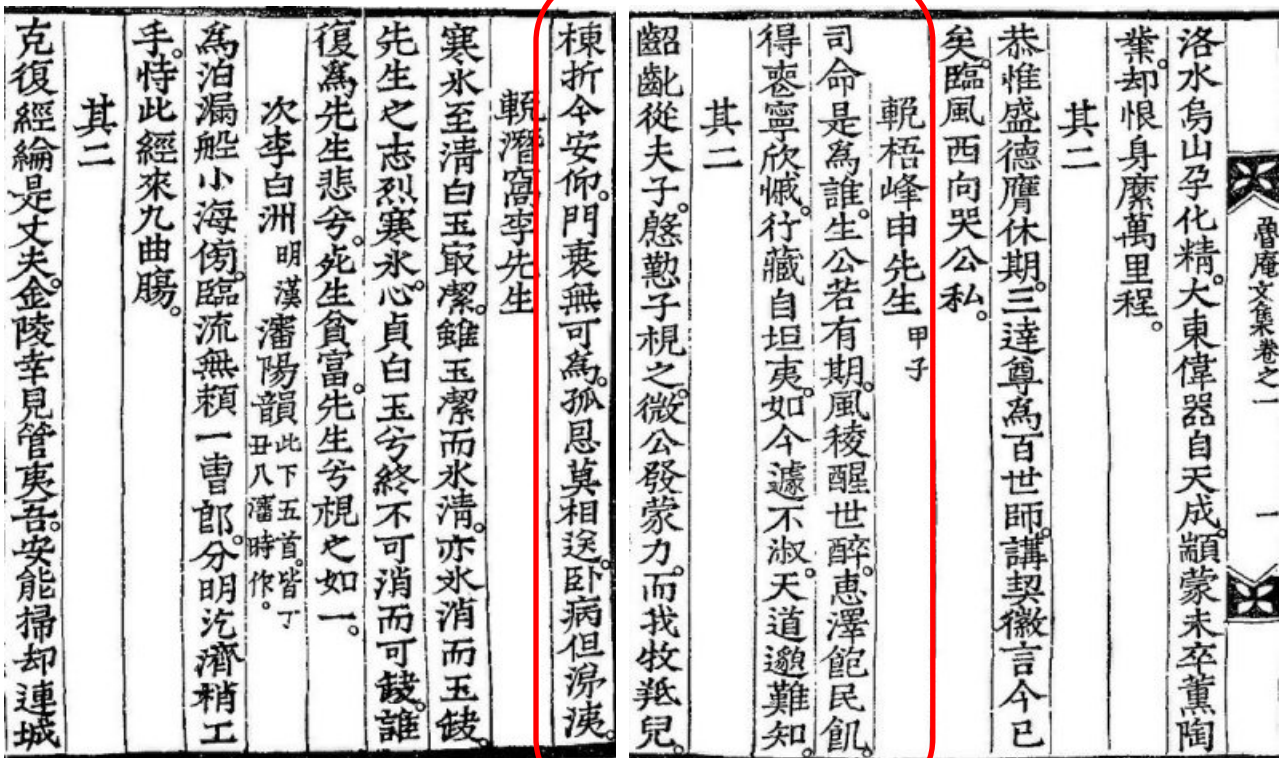 魯庵文集卷之一 一
洛水烏山孕化精。大東偉器自天成。顓蒙未卒薰陶
業。却恨身縻萬里程。
其二
恭惟盛德膺休期。三達尊爲百世師。講契徽言今已
矣。臨風西向哭公私。
輓梧峰申先生 甲子
司命是爲誰。生公若有期。風稜醒世醉。惠澤飽民飢。
得喪寧欣慽。行藏自坦夷。如今遽不淑。天道邈難知。
其二
齠齔從夫子。慇懃子視之。微公發蒙力。而我牧羝兒。
棟折今安仰。門衰無可爲。孤恩莫相送。卧病但涕洟。
輓潛窩李先生
寒氷至清白玉㝡潔。雖玉潔而氷清。亦氷消而玉缺。
先生之志烈寒氷。心貞白玉兮終不可消而可缺。誰
復爲先生悲兮。死生貧富。先生兮視之如一。
次李白洲 明漢 瀋陽韻 此下五首。皆丁丑入瀋時作。
爲泊漏船小海傍。臨流無賴一曺郎。分明汔濟梢工
手。恃此經來九曲膓。
其二
克復經綸是丈夫。金陵幸見管夷吾。安能掃却連城